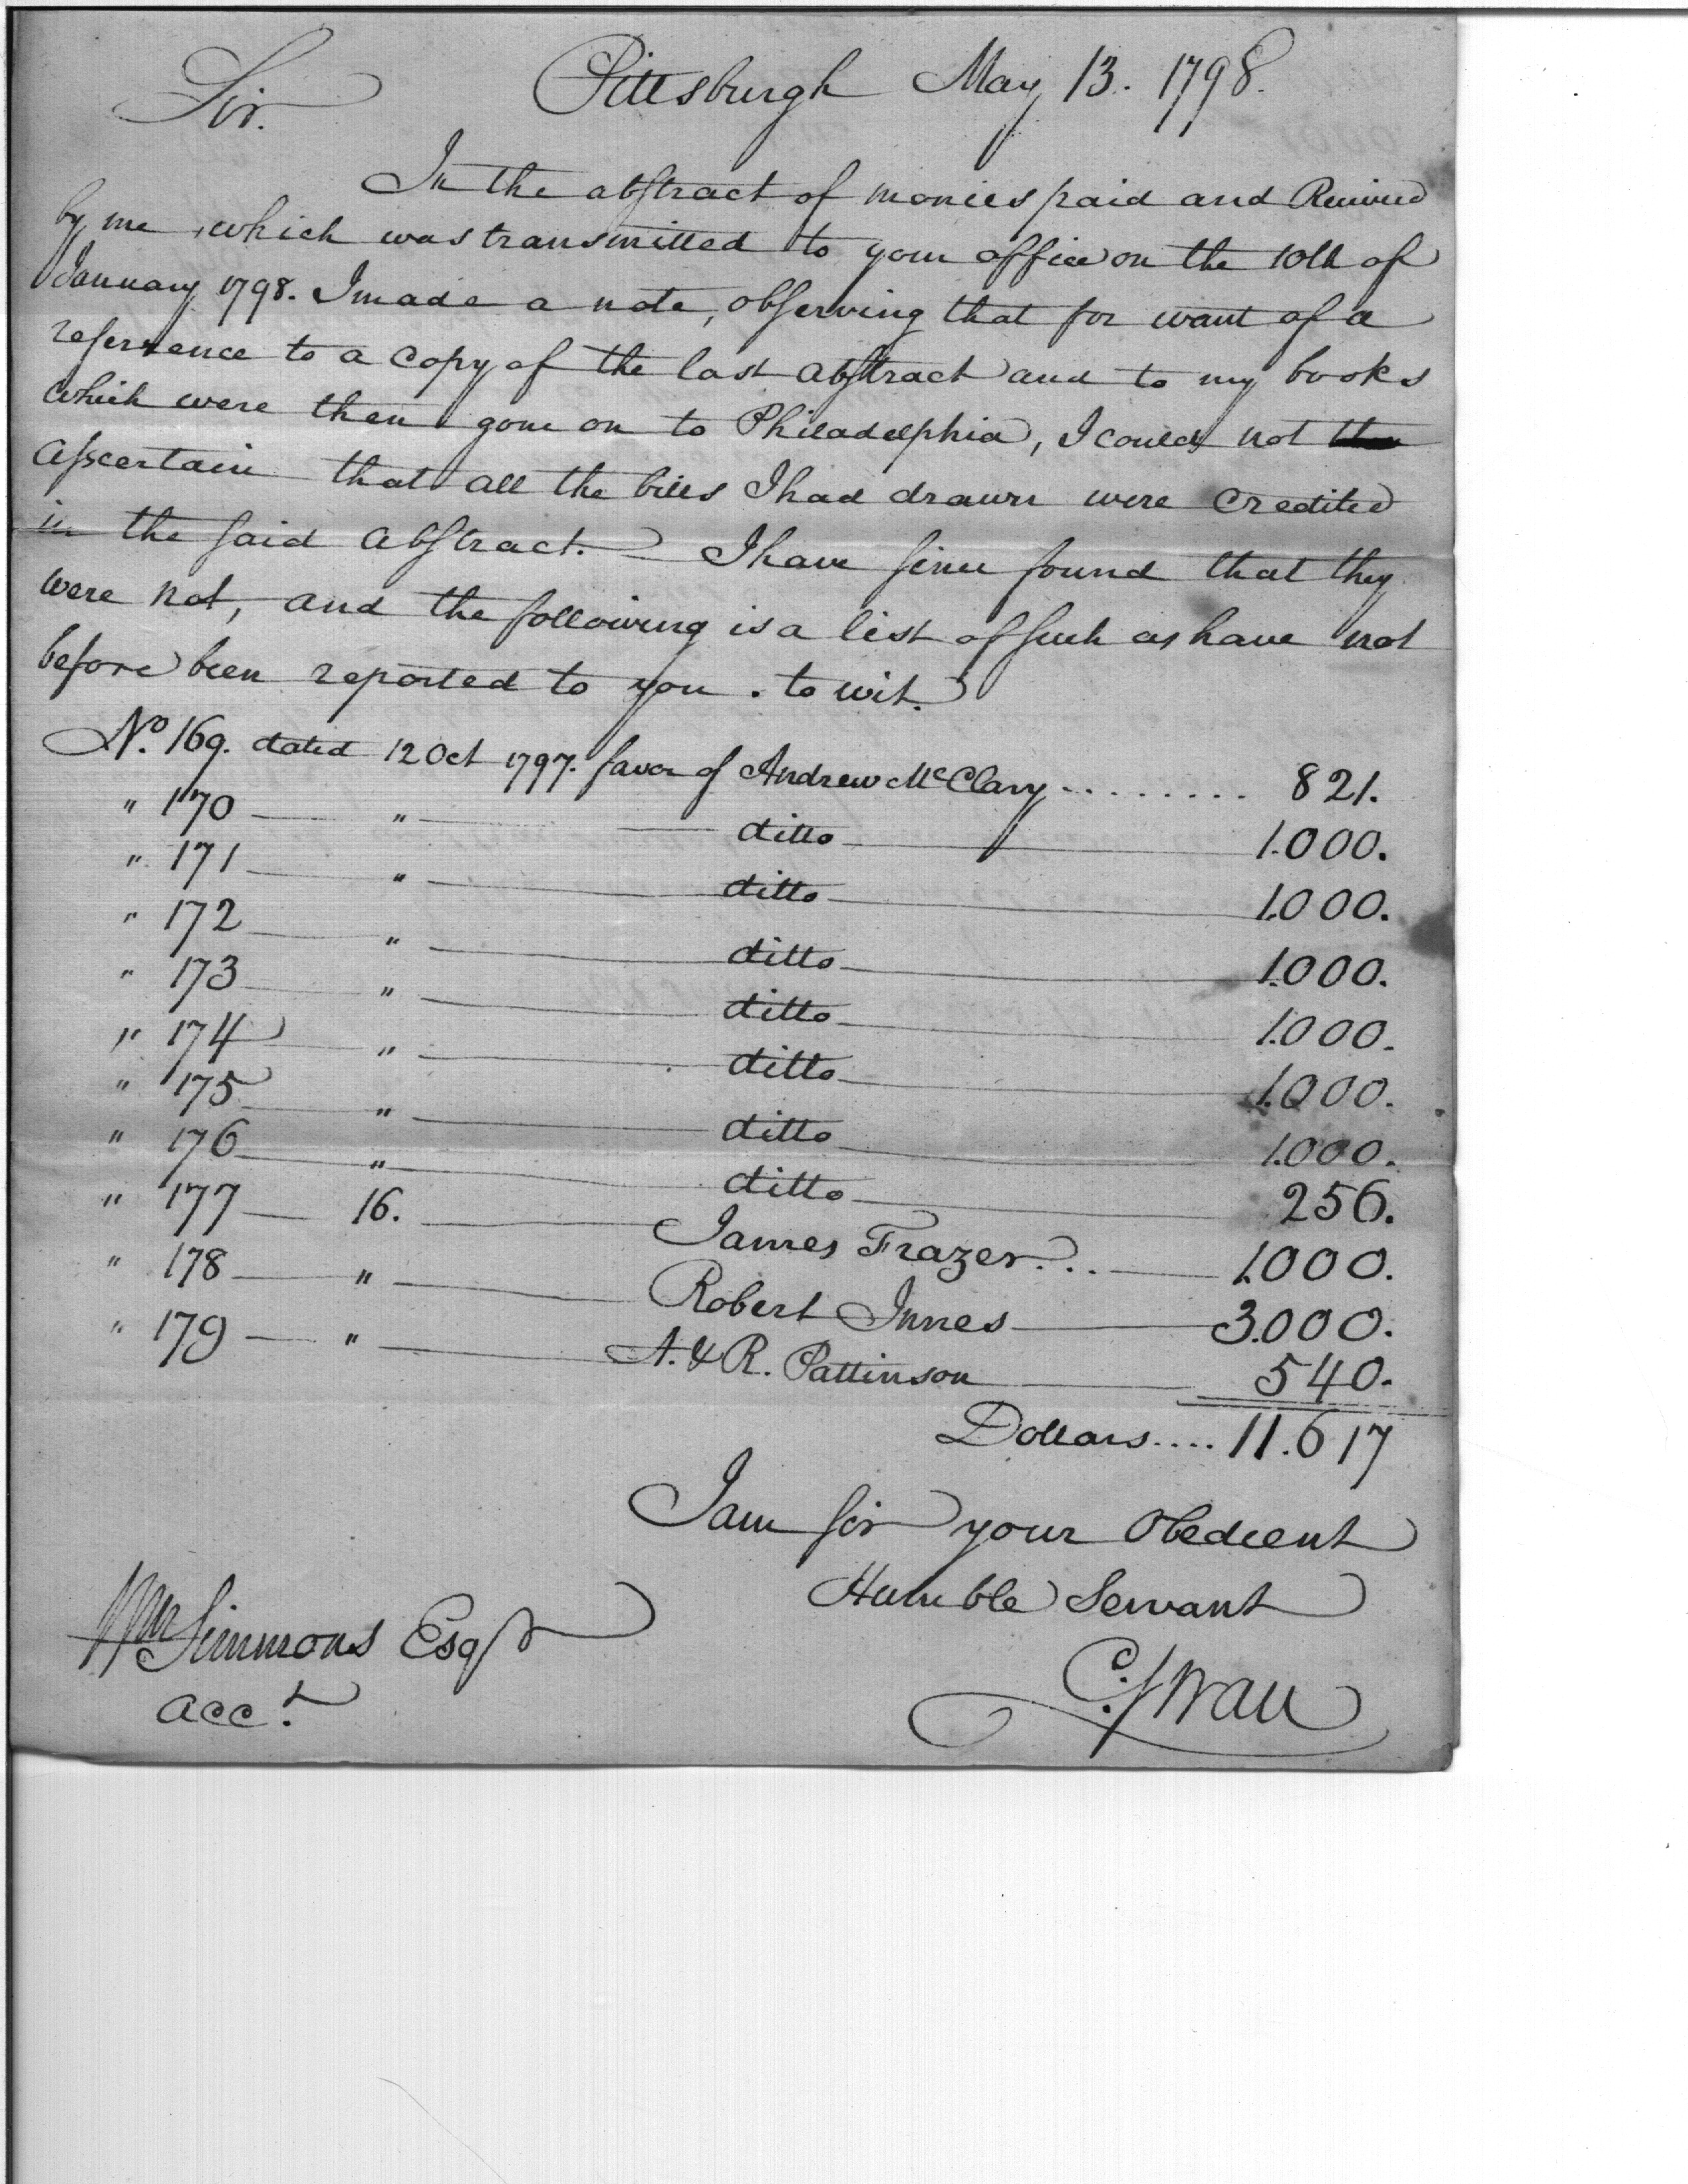 Pittsburgh May 13. 1798.
Sir.
In the abstract of monies paid and Received
by me, which was transmitted to your office on the 10th of
January 1798. I made a note, observing that for want of a
referrence to a copy of the last abstract and to my books
which were then gone on to Philadelphia, I could not the
ascertain that all the bills I had drawn were credited
in the said abstract. I have since found that they
were not, and the following is a list of such as have not
before been reported to you. to wit.
No. 169. dated 12 Oct 1797. favor of Andrew McClary ........ 821.
" 170 — " — ditto — 1.000.
" 171 — " — ditto — 1.000.
" 172 — " — ditto — 1.000.
" 173 — " — ditto — 1.000.
" 174 — " — ditto — 1.000.
" 175 — " — ditto — 1.000.
" 176 — " — ditto — 256.
" 177 — 16. — James Frazer... — 1.000.
" 178 — " — Robert Innes — 3.000.
" 179 — " — A. & R. Pattinson — 540.
Dollars.... 11.617
I am sir your Obedient
Humble Servant
Wm Simmons Esqr
acct.
C. Swan